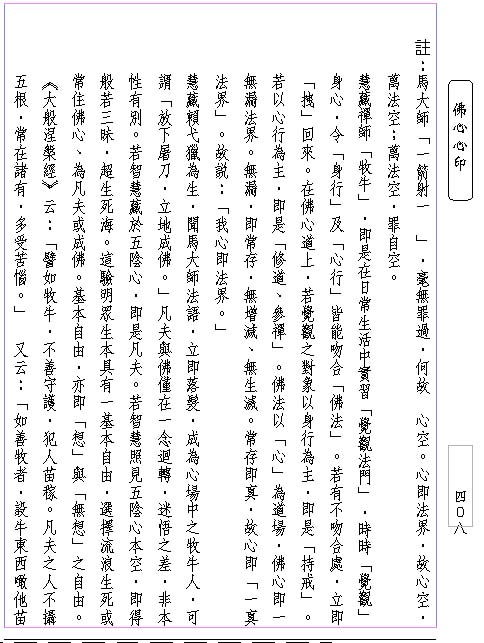 註：馬大師「一箭射一　」，毫無罪過，何故　心空。心即法界，故心空，
萬法空；萬法空，罪自空。
慧藏禪師「牧牛」，即是在日常生活中實習「覺觀法門」，時時「覺觀」
身心，令「身行」及「心行」皆能吻合「佛法」。若有不吻合處，立即
「拽」回來。在佛心道上，若覺觀之對象以身行為主，即是「持戒」。
若以心行為主，即是「修道、參禪」。佛法以「心」為道場，佛心即一
無漏法界。無漏，即常存，無增減、無生滅。常存即真，故心即「一真
法界」。故說：「我心即法界。」
慧藏賴弋獵為生，聞馬大師法語，立即落髮，成為心場中之牧牛人，可
謂「放下屠刀，立地成佛。」凡夫與佛僅在一念迴轉，迷悟之差，非本
性有別。若智慧藏於五陰心，即是凡夫。若智慧照見五陰心本空，即得
般若三昧，超生死海。這驗明眾生本具有一基本自由，選擇流浪生死或
常住佛心、為凡夫或成佛。基本自由，亦即「想」與「無想」之自由。
《大般涅槃經》云：「譬如牧牛，不善守護，犯人苗稼。凡夫之人不攝
五根，常在諸有，多受苦惱。」　又云：「如善牧者，設牛東西噉他苗
佛心心印
四０八